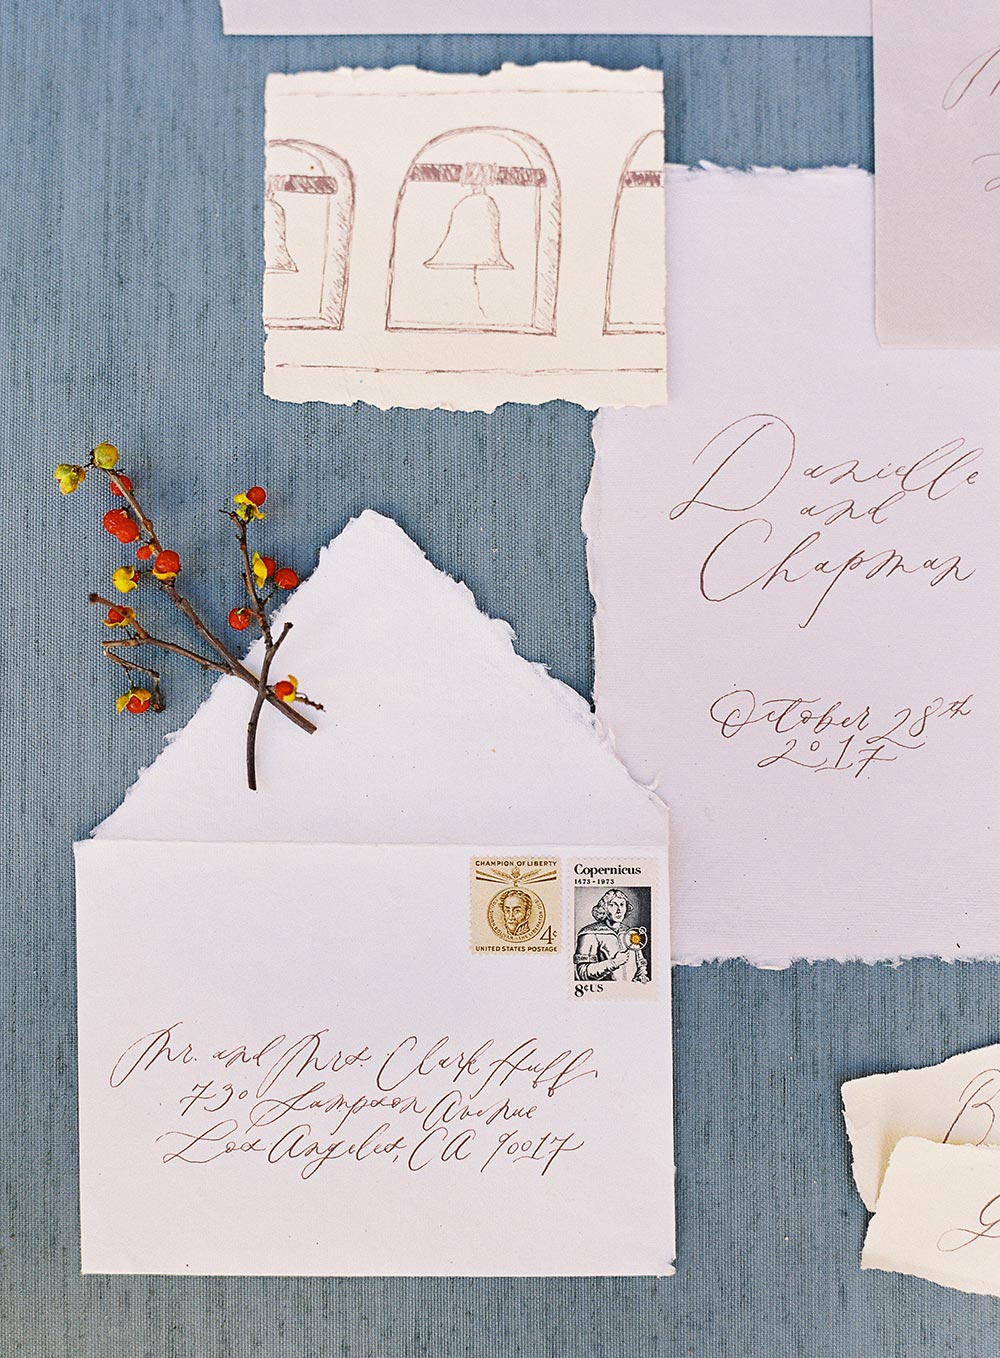 Danielle
and
Chapman
October 28th
2017
CHAMPION OF LIBERTY
4c
UNITED STATES POSTAGE
Copernicus
1473-1973
8¢US
Mr. and Mrs. Clark Huff
730 Sampson Avenue
Los Angeles, CA 90017
B
G